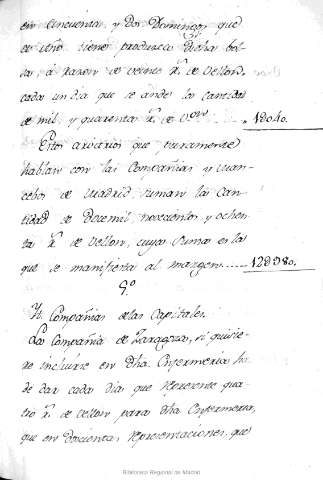 en Cinquenta, y dos Domingos, que
el año tiene produce dicha bol
sa á razon de veinte r.s de vellon,
cada un dia que se ande la cantidad
de mil, y quarenta r.s de v.on .. 1⨎040.
Estos arvitrios que unicamente
hablan con las Compañias, y Man-
cebos de Madrid, suman la can-
tidad de Doze mil, novecientos, y ochen-
ta r.s de vellon, cuya suma es la
que se manifiesta al margen..... 12⨎980.
§.º
Yt. Compañias de las Capitales.
La Compañia de Zaragoza, si quisie-
re incluirse en dha Enfermeria ha
de dar cada dia que represente qua-
tro r.s de vellon para dha Enfermeria,
que en doscientas representaciones, que
Biblioteca Regional de Madrid